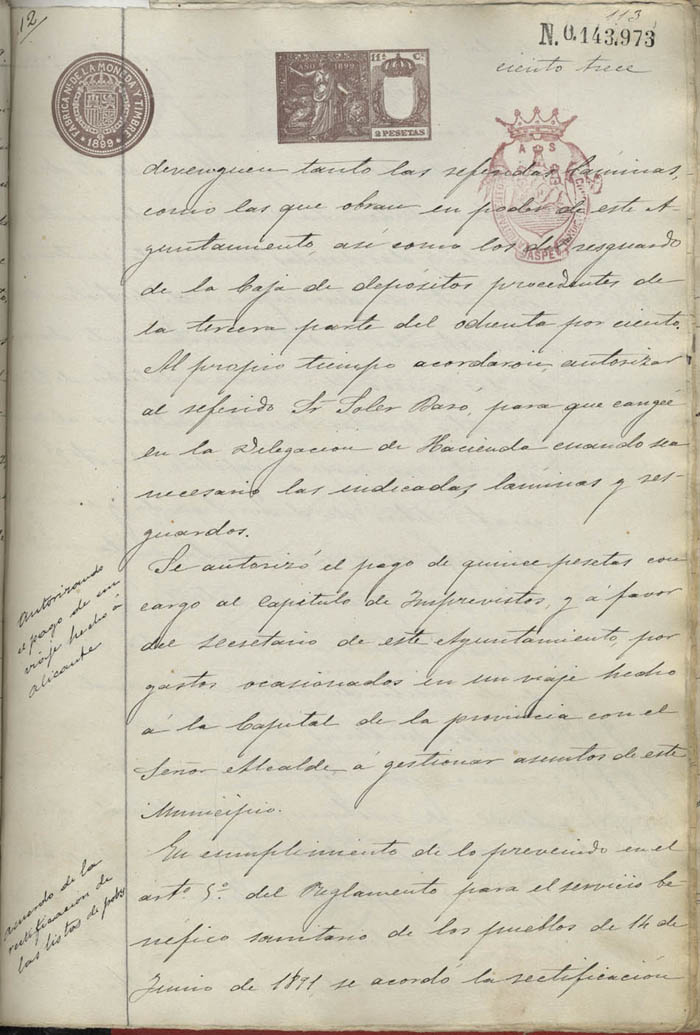 12
113
N. 0.143.973
ciento trece
FABRICA NAL DE LA MONEDA Y TIMBRE
1899
AÑO 1899
11ª C.
2 PESETAS
ASPE
devenguen tanto las referidas láminas,
como las que obran en poder de este A-
yuntamiento, así como los del resguardo
de la Caja de depósitos procedentes de
la tercera parte del ochenta por ciento.
Al propio tiempo acordaron, autorizar
al referido Sr Soler Rasó, para que cangée
en la Delegacion de Hacienda cuando sea
necesario las indicadas láminas y res-
guardos.
Autorizando
el pago de un
viaje hecho á
Alicante
Se autorizó el pago de quince pesetas con
cargo al Capítulo de Imprevistos, y á favor
del secretario de este Ayuntamiento, por
gastos ocasionados en un viaje hecho
á la Capital de la provincia con el
Señor Alcalde á gestionar asuntos de este
Municipio.
Acuerdo de la
rectificacion de
las listas de pobs
En cumplimiento de lo prevenido en el
artº 5º. del Reglamento para el servicio be-
néfico sanitario de los pueblos de 14 de
Junio de 1891, se acordó la rectificación